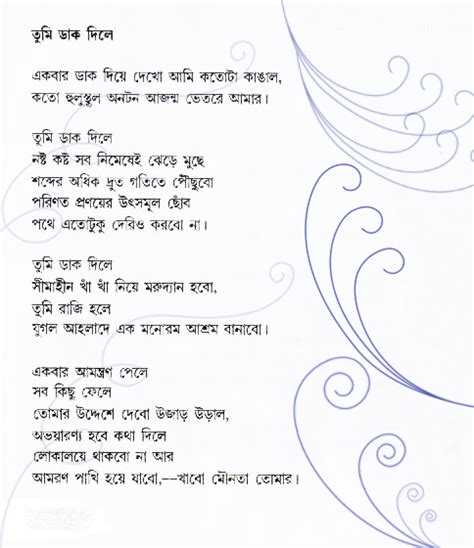 তুমি ডাক দিলে
একবার ডাক দিয়ে দেখো আমি কতোটা কাঙাল,
কতো হুলুস্থুল অনটন আজন্ম ভেতরে আমার।
তুমি ডাক দিলে
নষ্ট কষ্ট সব নিমেষেই ঝেড়ে মুছে
শব্দের অধিক দ্রুত গতিতে পৌঁছুবো
পরিণত প্রণয়ের উৎসমূল ছোঁব
পথে এতোটুকু দেরিও করবো না।
তুমি ডাক দিলে
সীমাহীন খাঁ খাঁ নিয়ে মরুদ্যান হবো,
তুমি রাজি হলে
যুগল আহলাদে এক মনোরম আশ্রম বানাবো।
একবার আমন্ত্রণ পেলে
সব কিছু ফেলে
তোমার উদ্দেশে দেবো উজাড় উড়াল,
অভয়ারণ্য হবে কথা দিলে
লোকালয়ে থাকবো না আর
আমরণ পাখি হয়ে যাবো,--খাবো মৌনতা তোমার।